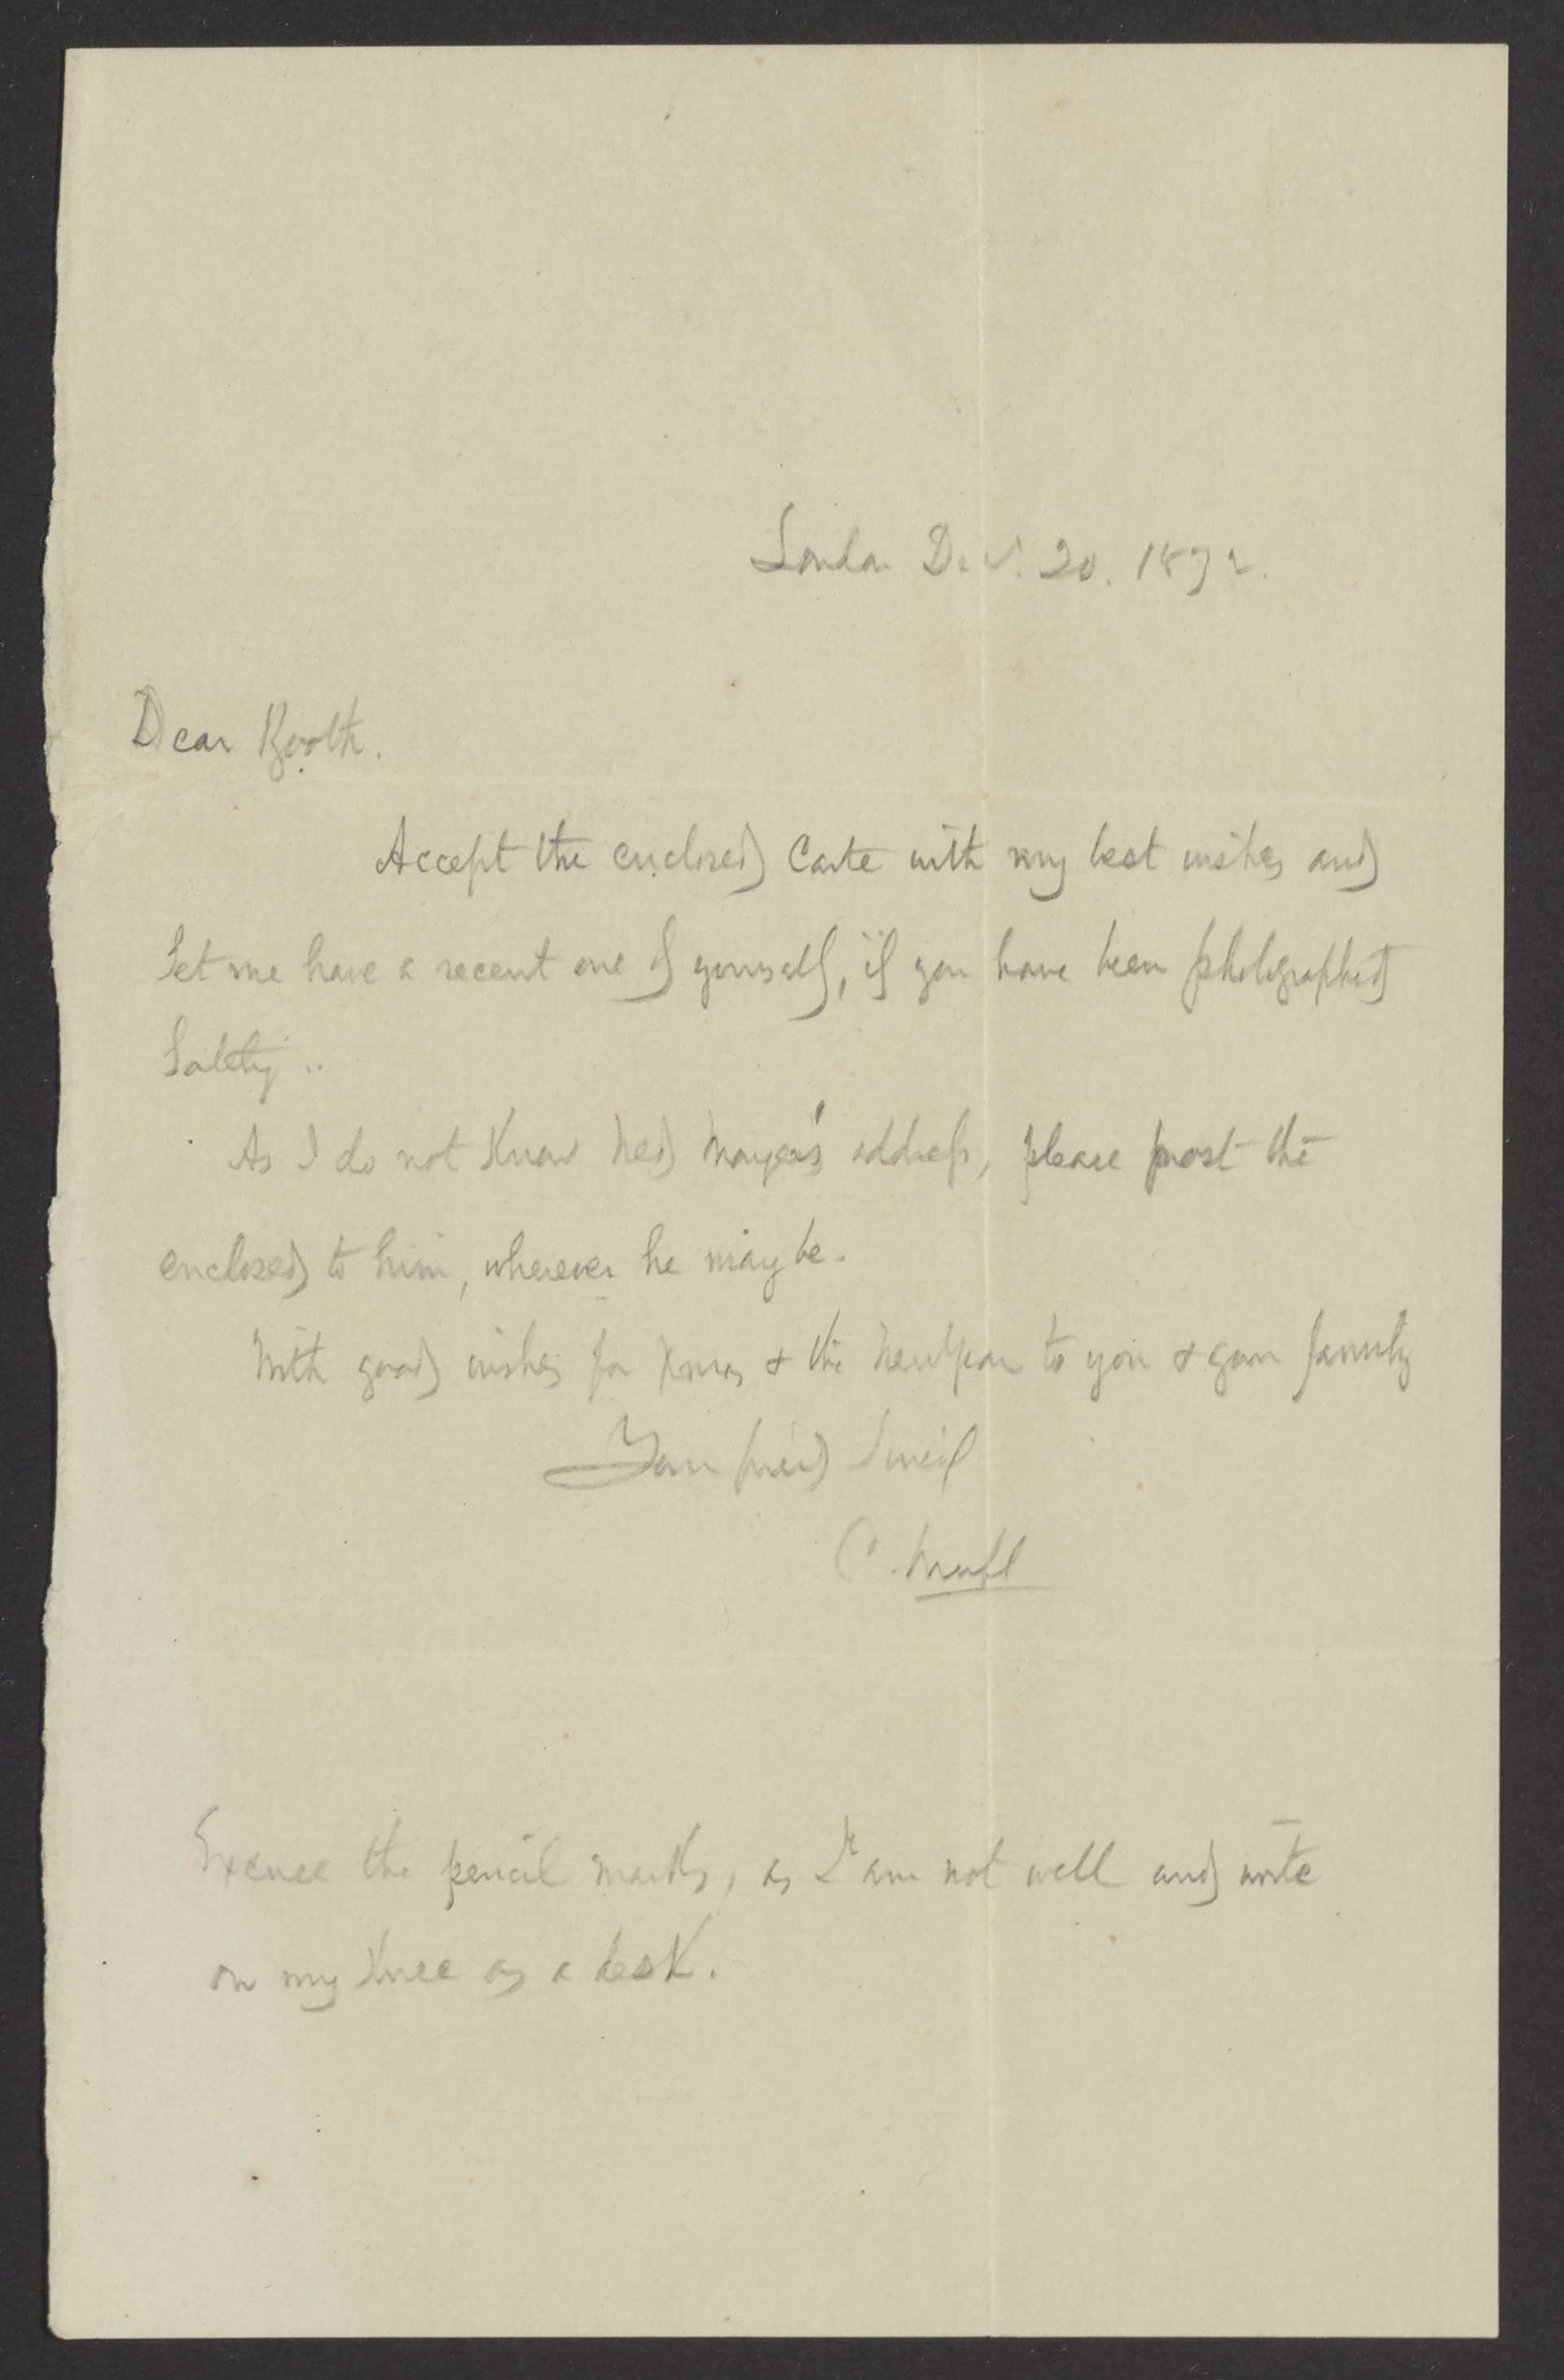 London Dec. 20. 1892.
Dear Booth.
Accept the enclosed Carte with my best wishes and
let me have a recent one of yourself, if you have been photographed
lately..
As I do not Know Ned Mayer's address, please post the
enclosed to him, wherever he may be.
With good wishes for Xmas & the New Year to you & your family
Your friend
C.
Excuse the pencil marks, as I am not well and write
on my Knee as a desk.